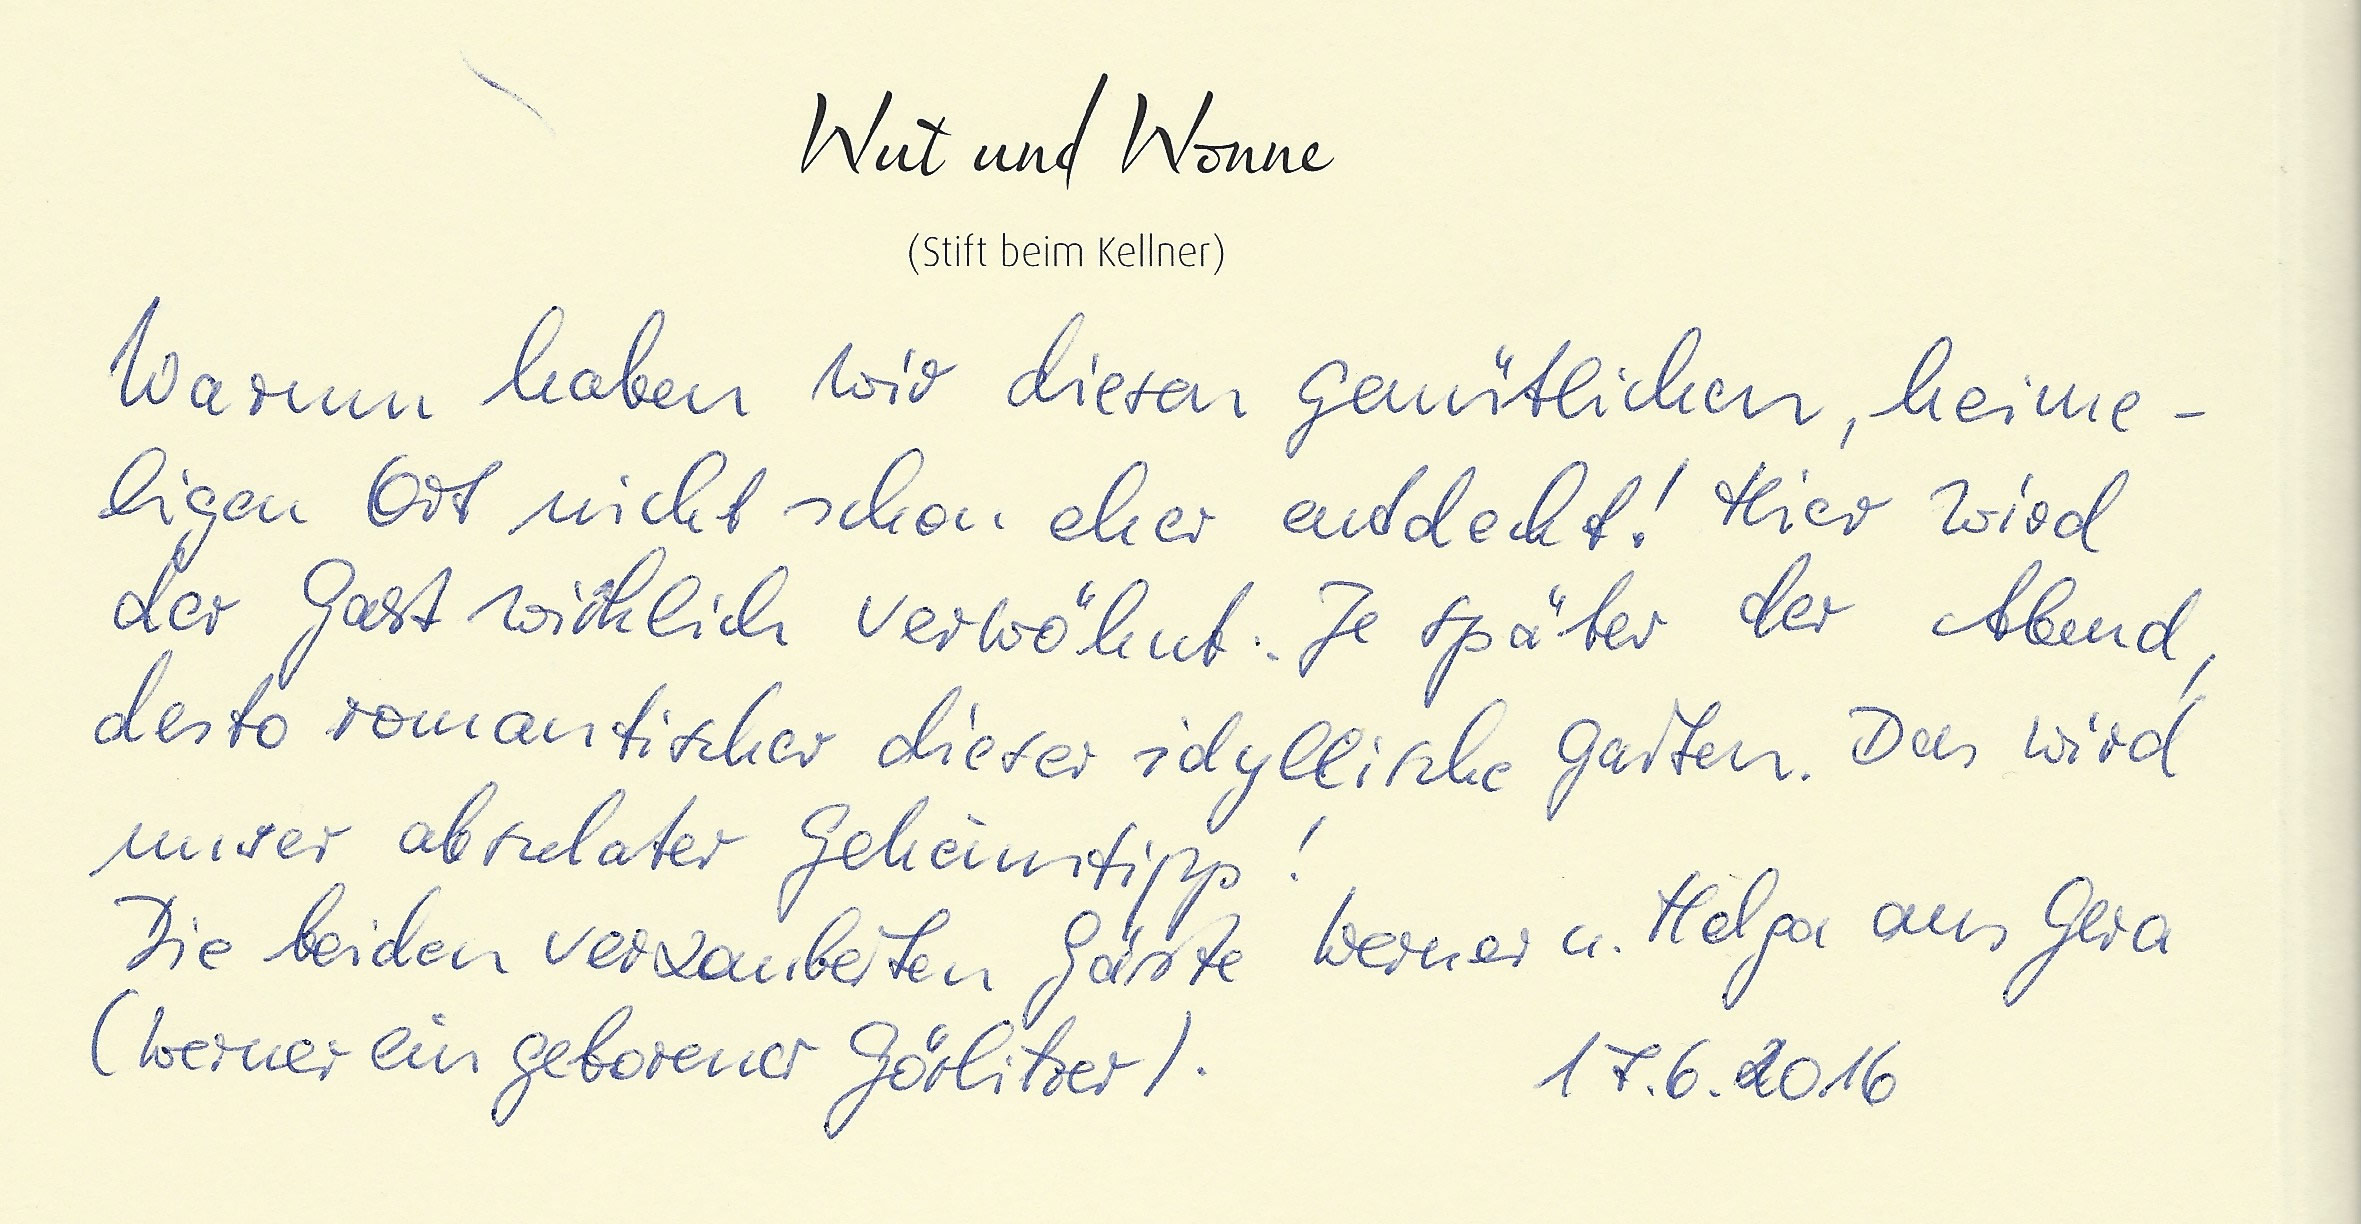 Wut und Wonne
(Stift beim Kellner)
Warum haben wir diesen gemütlichen, heime-
ligen Ort nicht schon eher entdeckt! Hier wird
der Gast wirklich verwöhnt. Je später der Abend,
desto romantischer dieser idyllische Garten. Das wird
unser absoluter Geheimtipp!
Die beiden verzauberten Gäste Werner u. Helga aus Gera
(Werner ein geborener Görlitzer).
17.6.2016